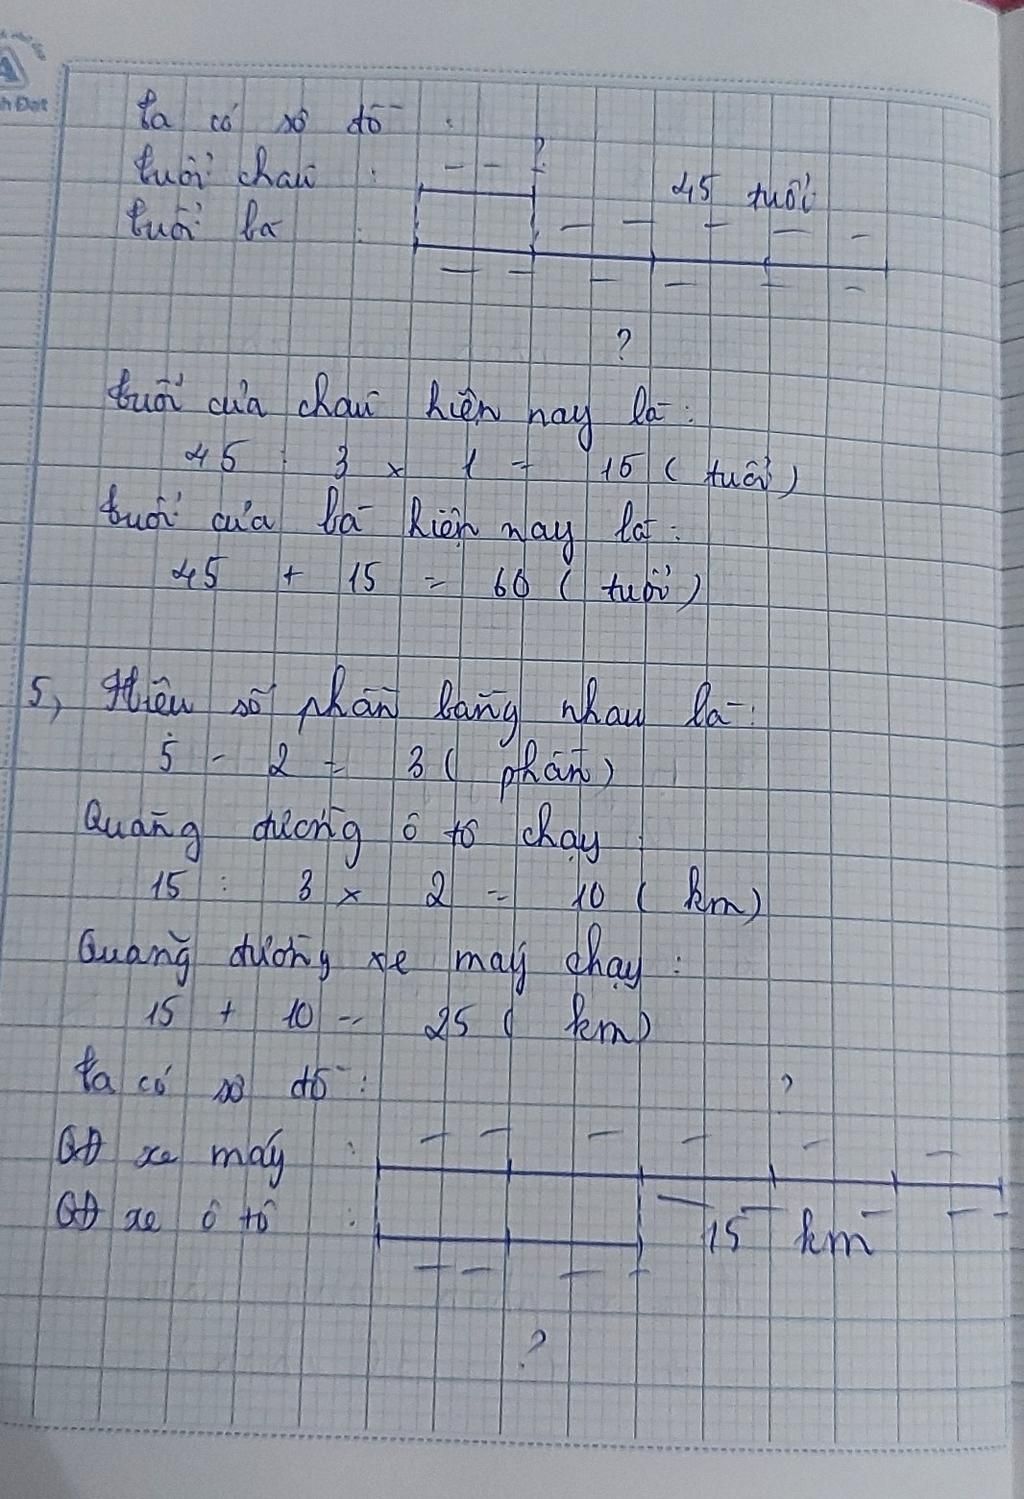 Ta có sơ đồ :
Tuổi cháu : ?
45 tuổi
Tuổi bà :
?
Tuổi của cháu hiện nay là :
45 : 3 x 1 = 15 ( tuổi )
Tuổi của bà hiện nay là :
45 + 15 = 60 ( tuổi )
5, Hiệu số phần bằng nhau là :
5 - 2 = 3 ( phần )
Quãng đường ô tô chạy :
15 : 3 x 2 = 10 ( km )
Quãng đường xe máy chạy :
15 + 10 = 25 ( km )
Ta có sơ đồ :
?
QĐ xe máy :
QĐ xe ô tô : 15 km
?